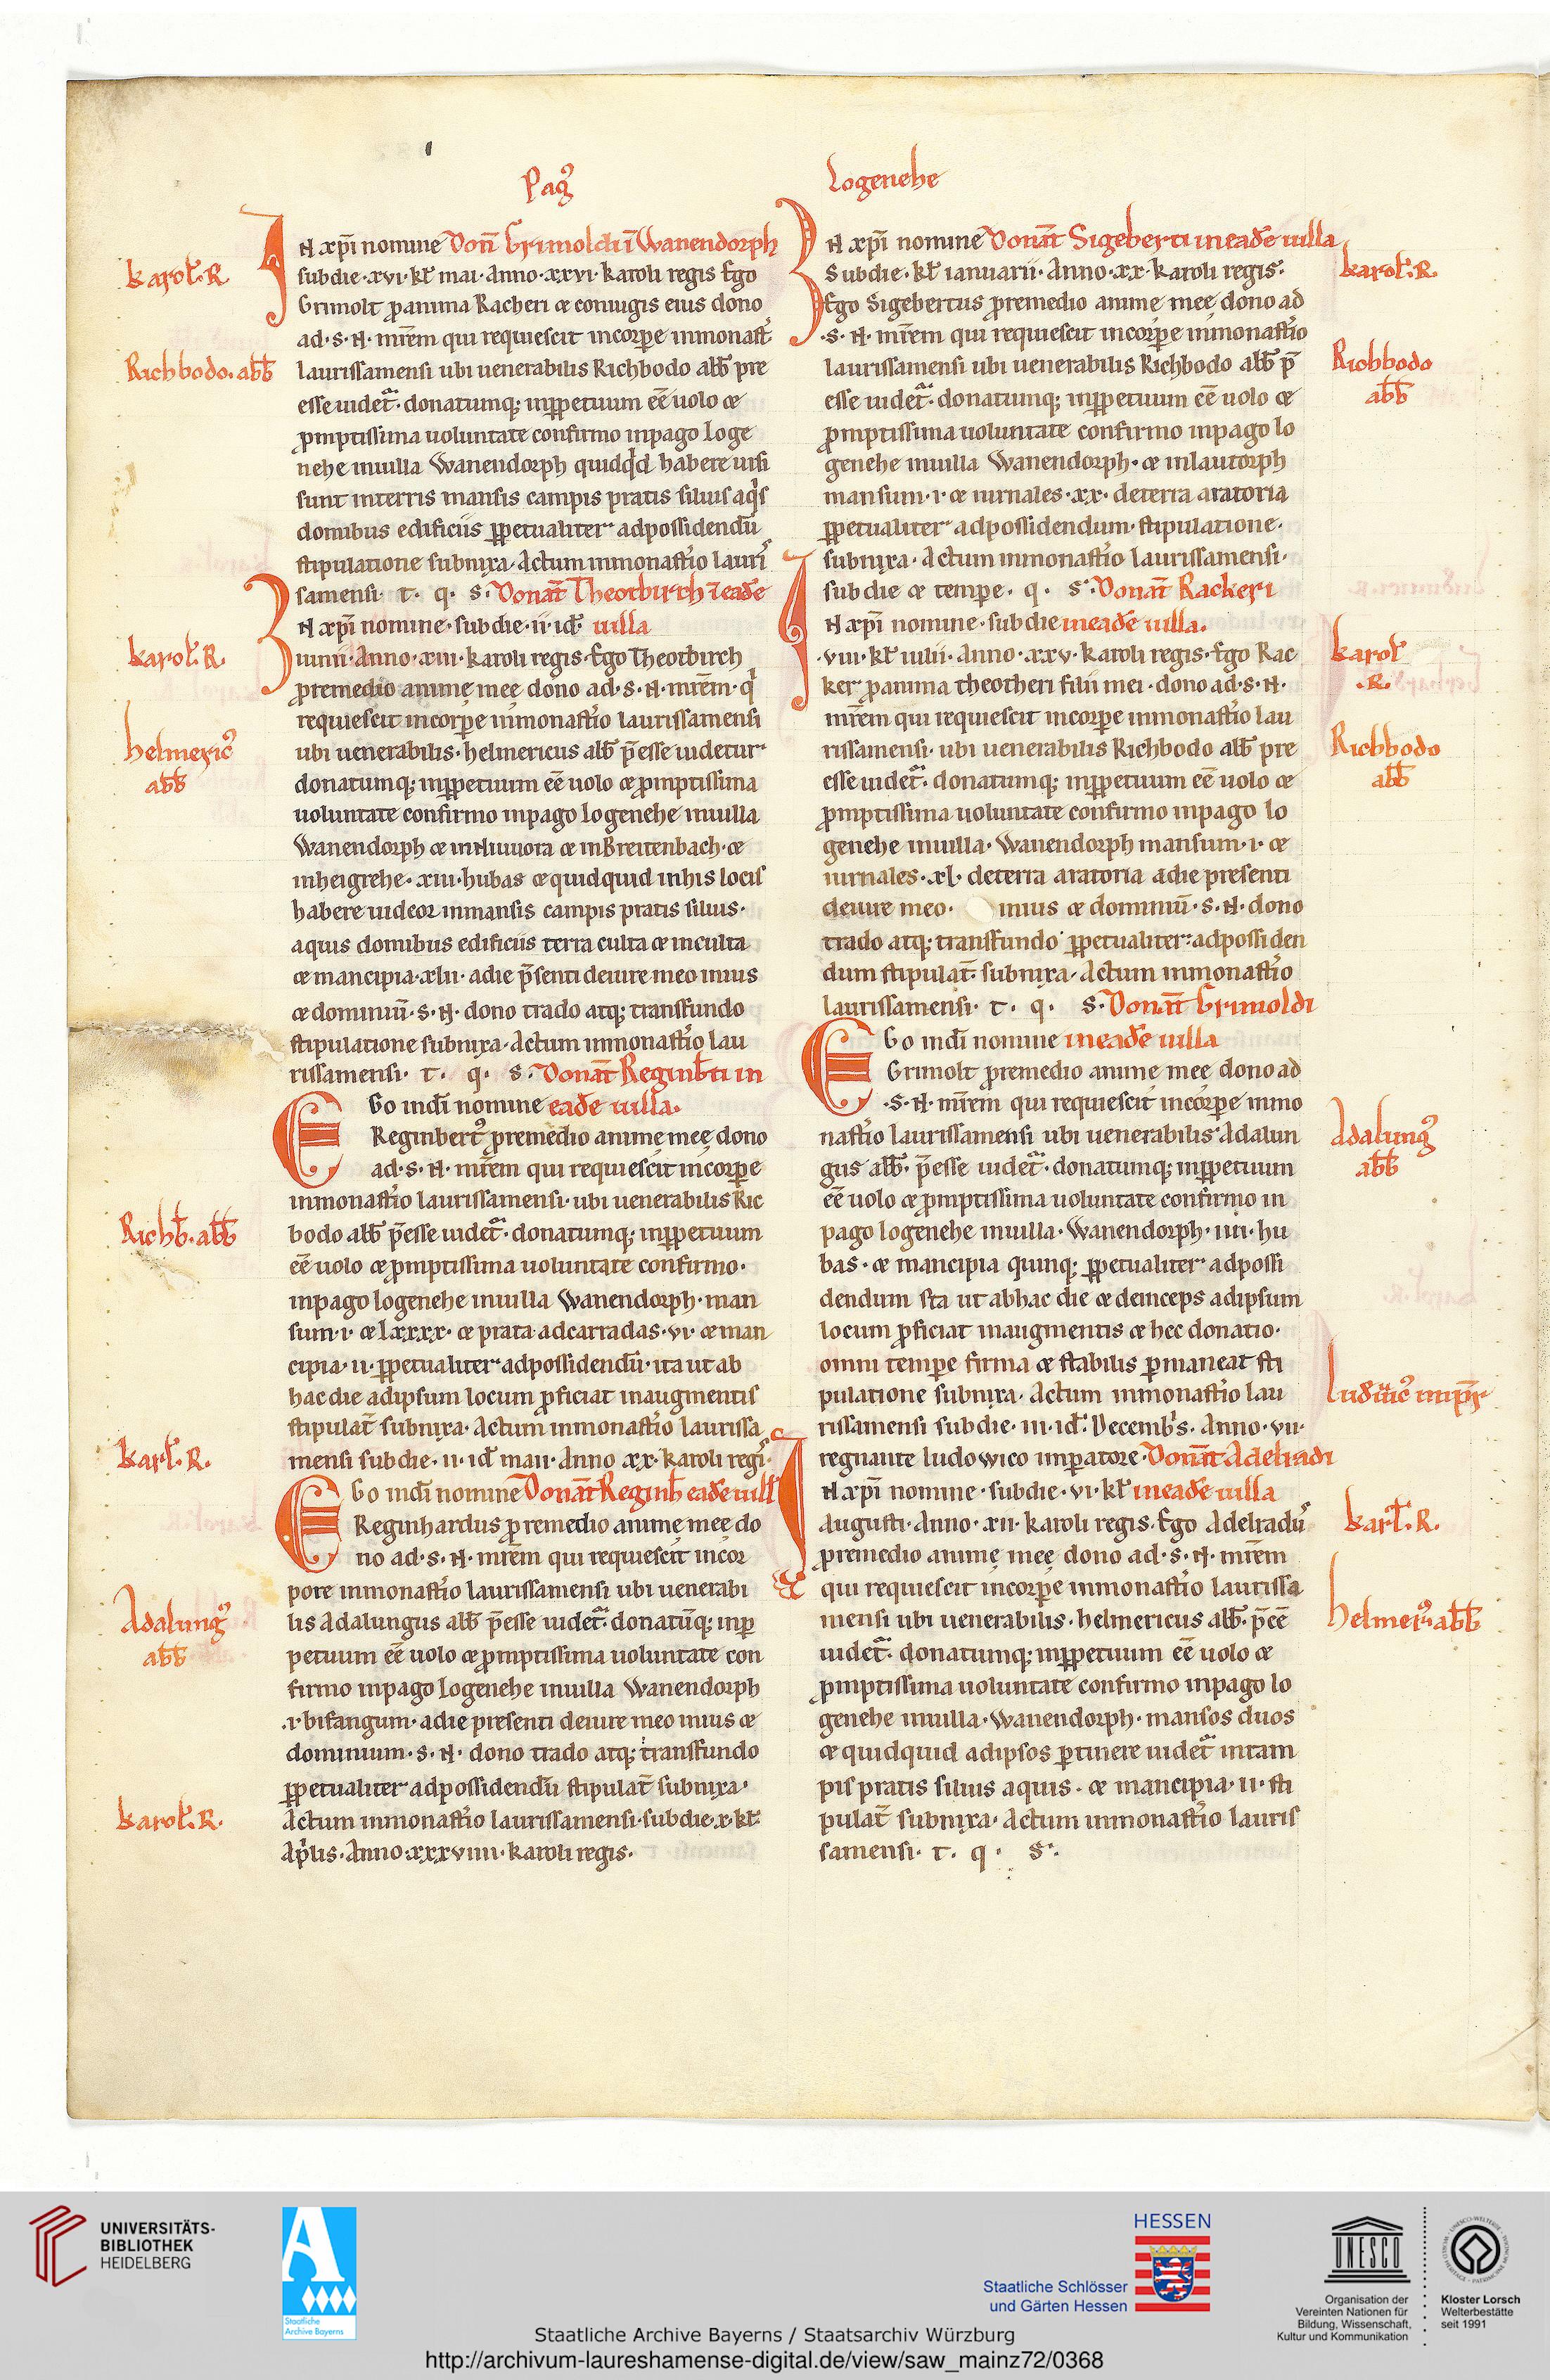 Pagꝰ
Logenehe
IN xp̄i nomine Don̄ Grimoldi ī Wanendorph
sub die · xvi · kl̄ mai · Anno · xxvi · karoli regis Ego
Grimolt ꝓ anima Racheri ⁊ coniugis eius dono
ad · S · N · mr̄em qui requiescit in corꝑe in monast̄
laurissamensi ubi uenerabilis Richbodo abb̄ pre
esse uidet᷑ · donatumq; inꝑpetuum eē uolo ⁊
ꝓmptissima uoluntate confirmo in pago loge
nehe in uilla Wanendorph quidqd habere uisi
sunt in terris mansis campis pratis siluis aqis
domibus edificiis ꝑpetualiter ad possidendū
stipulatione subnixa · Actum in monast̄io lauri
samensi · t · q · S · Donat̄ Theotbirch ī eadē
IN xp̄i nomine · sub die · ii · id̄ · uilla
iunii · Anno · xiii · karoli regis · Ego Theotbirch
ꝓ remedio animę meę dono ad · S · N · mr̄em · q
requiescit in corꝑe in monast̄io laurissamensi
ubi uenerabilis · helmericus abb̄ p̄esse uidetur
donatumq; inꝑpetuum eē uolo ⁊ ꝓmptissima
uoluntate confirmo in pago logenehe in uilla
Wanendorph ⁊ in Niuuora ⁊ in Breitenbach · ⁊
in heigrehe · xiii · hubas ⁊ quidquid in his locis
habere uideor in mansis campis pratis siluis ·
aquis domibus edificiis terra culta ⁊ inculta
⁊ mancipia · xlii · a die p̄senti de iure meo in ius
⁊ dominiū · S · N · dono trado atq; transfundo
stipulatione subnixa · Actum in monast̄io lau
rissamensi · t · q · S · Donat̄ Reginb̄ti in
EGo in dī nomine eadē uilla ·
Reginbertꝰ ꝓ remedio anime meę dono
ad · S · N · mr̄em qui requiescit in corꝑe
in monast̄io laurissamensi · ubi uenerabilis Ric
bodo abb̄ p̄esse uidet᷑ · donatumq; inꝑpetuum
eē uolo ⁊ ꝓmptissima uoluntate confirmo ·
in pago logenehe in uilla Wanendorph · man
sum · i · ⁊ lxxxx · ⁊ prata ad carradas · vi · ⁊ man
cipia · ii · ꝑpetualiter ad possidendū · ita ut ab
hac die ad ipsum locum ꝓficiat in augmentis
stipulat̄ subnixa · Actum in monast̄io laurissa
mensi sub die · ii · id̄ maii · Anno xx · karoli regī ·
EGo in dī nomine Donat̄ Reginh̄ eadē uill
Reginhardus ꝓ remedio anime meę do
no ad · S · N · mr̄em qui requiescit in cor
pore in monast̄io laurissamensi ubi uenerabi
lis Adalungus abb̄ p̄esse uidet᷑ · donatūq; inꝑ
petuum eē uolo ⁊ ꝓmptissima uoluntate con
firmo in pago Logenehe in uilla Wanendorph
· i · bifangum · a die presenti de iure meo in ius ⁊
dominium · S · N · dono trado atq; transfundo
ꝑpetualiter ad possidendū stipulat̄ subnixa ·
Actum in monast̄io laurissamensi · sub die · x · kl̄
Aplis · Anno · xxxviiii · karoli regis ·
IN xp̄i nomine Donat̄ Sigeberti in eadē uilla
Sub die · kl̄ ianuarii · Anno · xx · karoli regis ·
Ego Sigebertus ꝓ remedio anime meę dono ad
· S · N · mr̄em qui requiescit in corꝑe in monast̄io
laurissamensi ubi uenerabilis Richbodo abb̄ p̄
esse uidet᷑ · donatumq; inꝑpetuum eē uolo ⁊
ꝓmptissima uoluntate confirmo in pago lo
genehe in uilla Wanendorph · ⁊ in lautorph
mansum · i · ⁊ iurnales · xx · de terra aratoria
ꝑpetualiter ad possidendum · stipulatione ·
subnixa · Actum in monast̄io laurissamensi ·
sub die ⁊ tempe · q · S · Donat̄ Rackeri
IN xp̄i nomine · sub die in eadē uilla ·
· viii · kl̄ iulii · Anno · xxv · karoli regis · Ego Rac
ker ꝓ anima theotheri filii mei · dono ad · S · N ·
mr̄em qui requiescit in corꝑe in monast̄io lau
rissamensi · ubi uenerabilis Richbodo abb̄ pre
esse uidet᷑ · donatumq; inꝑpetuum eē uolo ⁊
ꝓmptissima uoluntate confirmo in pago lo
genehe in uilla · Wanendorph mansum · i · ⁊
iurnales · xl · de terra aratoria a die presenti
de iure meo · in ius ⁊ dominiū · S · N · dono
trado atq; transfundo ꝑpetualiter ad possiden
dum stipulat̄ · subnixa · Actum in monast̄io
laurissamensi · t · q · S · Donat̄ Grimoldi
EGo in dī nomine in eadē uilla
Grimolt ꝓ remedio anime meę dono ad
· S · N · mr̄em qui requiescit in corꝑe in mo
nast̄io laurissamensi ubi uenerabilis Adalun
gus abb̄ · p̄esse uidet᷑ · donatumq; inꝑpetuum
eē uolo ⁊ ꝓmptissima uoluntate confirmo in
pago logenehe in uilla · Wanendorph · iiii · hu
bas · ⁊ mancipia quinq; ꝑpetualiter ad possi
dendum ita ut ab hac die ⁊ deinceps ad ipsum
locum ꝓficiat in augmentis ⁊ hec donatio ·
omni tempe firma ⁊ stabilis ꝑmaneat sti
pulatione subnixa · Actum in monast̄io lau
rissamensi sub die · iii · id̄ · Decemb̄s · Anno · vii ·
regnante ludowico imꝑatore · Donat̄ Adelradi
IN xp̄i nomine · sub die · vi · kl̄ in eadē uilla
Augusti · Anno · xii · karoli regis · Ego Adelradꝰ
ꝓ remedio animę meę dono ad · S · N · mr̄em
qui requiescit in corꝑe in monast̄io laurissa
mensi ubi uenerabilis · helmericus abb̄ · p̄eē
uidet᷑ · donatumq; inꝑpetuum eē uolo ⁊
ꝓmptissima uoluntate confirmo in pago lo
genehe in uilla · Wanendorph · mansos duos
⁊ quidquid ad ipsos ꝑtinere uidet᷑ in cam
pis pratis siluis aquis · ⁊ mancipia · ii · sti
pulat̄ subnixa · Actum in monast̄io lauris
samensi · t · q · S ·
karol̄ · R
Richbodo · abb̄
karol̄ · R ·
helmericꝰ
abb̄
Richb̄ · abb̄
karl̄ · R ·
Adalungꝰ
abb̄
karol̄ · R ·
karol̄ · R ·
Richbodo
abb̄
karol̄
· R ·
Richbodo
abb̄
Adalungꝰ
abb̄
ludūicꝰ imp̄r
karl̄ · R ·
helmerꝰ · abb̄
UNIVERSITÄTS-
BIBLIOTHEK
HEIDELBERG
Staatliche
Archive Bayerns
HESSEN
Staatliche Schlösser
und Gärten Hessen
UNESCO
Organisation der
Vereinten Nationen für
Bildung, Wissenschaft,
Kultur und Kommunikation
Kloster Lorsch
Welterbestätte
seit 1991
Staatliche Archive Bayerns / Staatsarchiv Würzburg
http://archivum-laureshamense-digital.de/view/saw_mainz72/0368